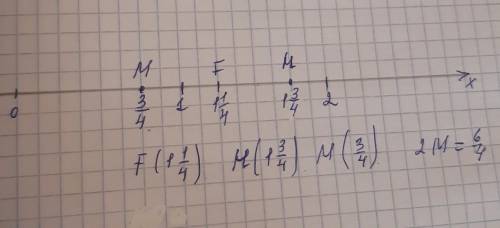 M F М
0 3/4 1 1 1/4 1 3/4 2 x
F (1 1/4) М (1 3/4) M (3/4) 2M = 6/4